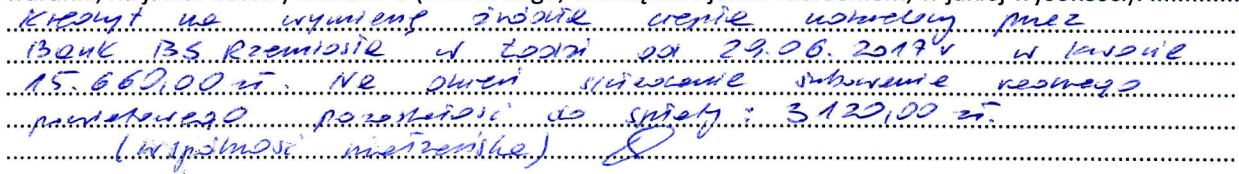 Kredyt na wymianę źródła ciepła udzielony przez
Bank BS Rzemiosła w Łodzi od 29.06.2017 r w kwocie
15.660,00 zł. Na dzień składania ślubowania radnego
powiatowego pozostałość do spłaty : 3120,00 zł.
(wspólność małżeńska)